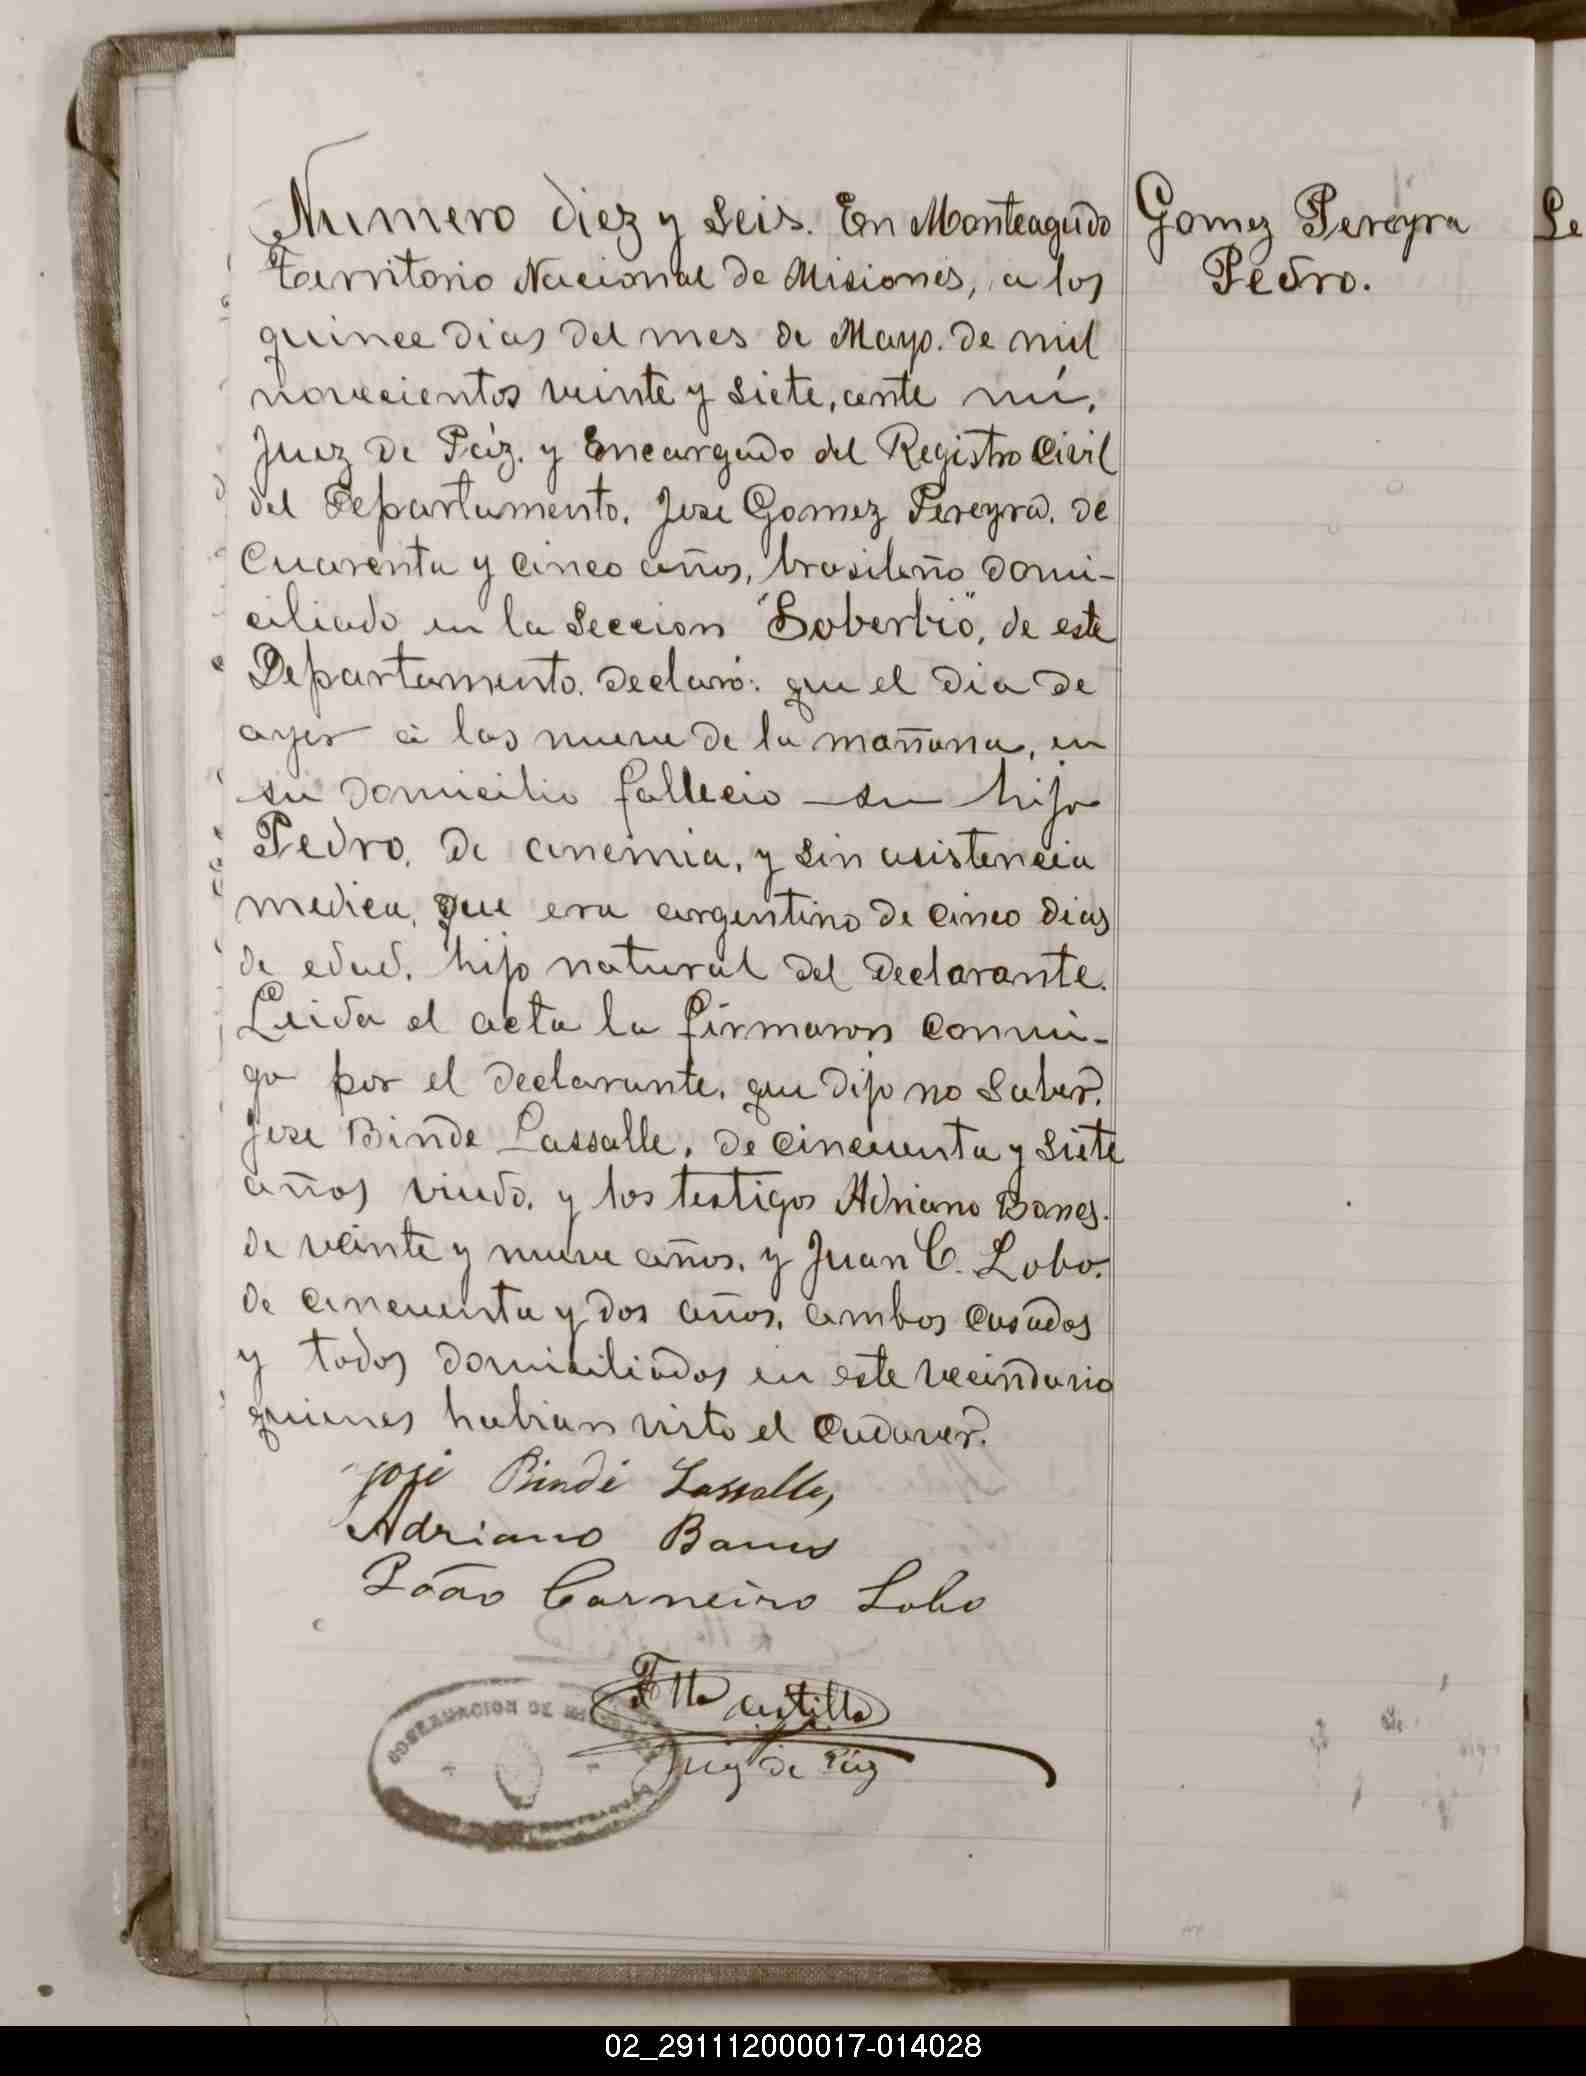 Numero diez y seis. En Monteagudo
Territorio Nacional de Misiones, a los
quince dias del mes de Mayo. de mil
novecientos veinte y siete, ante mí,
Juez de Páz. y Encargado del Registro Civil
del Departamento. Jose Gomez Pereyra. de
Cuarenta y cinco años, brasileño domi-
ciliado en la Seccion "Soberbio", de este
Departamento. declaró: que el dia de
ayer á las nueve de la mañana, en
su domicilio fallecio su hijo
Pedro. de anemia, y sin asistencia
medica, que era argentino de cinco dias
de edad, hijo natural del declarante.
Leida el acta la firmaron conmi-
go por el declarante, que dijo no saber.
Jose Binde Lassalle, de cincuenta y siete
años viudo, y los testigos Adriano Banes.
de veinte y nueve años. y Juan C. Lobo.
de cincuenta y dos años, ambos casados
y todos domiciliados en este vecindario
quienes habian visto el cadaver.
José Bindé Lassalle,
Adriano Banes
João Carneiro Lobo
Castillo
Juez de Páz
GOBERNACION DE
Gomez Pereyra
Pedro.
02_291112000017-014028